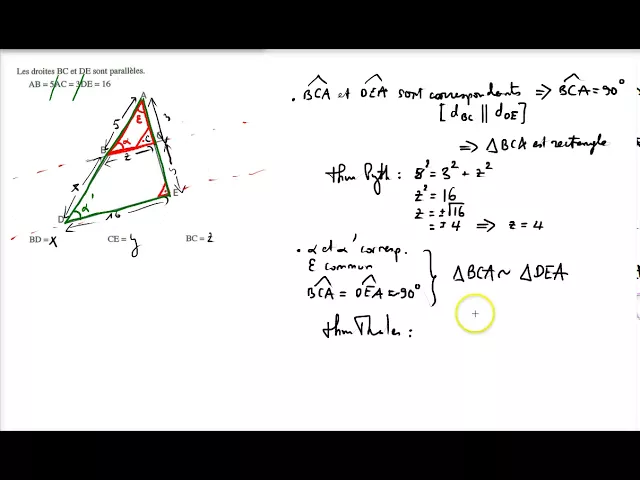 Les droites BC et DE sont parallèles.
AB = 5/AC = 3/DE = 16
A
5
3
ε
B
α
C
z
x
y
E
D
α'
16
BD = x
CE = y
BC = z
• BCA et DEA sont correspondants ⇒ BCA = 90°
[d_BC || d_DE]
⇒ ΔBCA est rectangle
thm Pyth : 5² = 3² + z²
z² = 16
z = ±√16
= ± 4 ⇒ z = 4
• α et α' corresp.
ε commun
BCA = DEA = 90°
ΔBCA ~ ΔDEA
thm Thales :